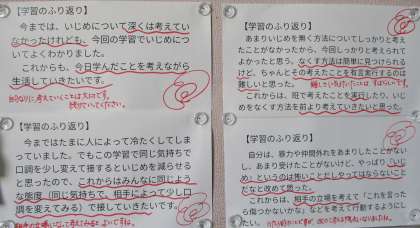 【学習のふり返り】
今までは、いじめについて深くは考えてい
なかったけれども、今回の学習でいじめにつ
いてよくわかりました。
これからも、今日学んだことを考えながら
生活していきたいです。
【学習のふり返り】
今まではたまに人によって冷たくしてしま
っていました。でもこの学習で同じ気持ちで
口調を少し変えて接するといじめを減らせる
と思ったので、これからはみんなに同じよう
な態度（同じ気持ちで、相手によって少し口
調を変えてみる）で接していきたいです。
【学習のふり返り】
あまりいじめを無く方法についてしっかりと考え
たことがなかったから、今回しっかりと考えられて
よかったと思う。なくす方法は簡単に見つけられる
けど、ちゃんとその考えたことを有言実行するのは
難しいと思った。
これからは、班で考えたことを実行したり、いじ
めをなくす方法を前より考えていきたいと思った。
【学習のふり返り】
自分は、暴力や仲間外れをあまりしたことがない
し、あまり受けたことがないけど、やっぱり「いじ
め」というのは怖いことだしやってはならないこと
だなと改めて思った。
これからは、相手の立場を考えて「これを言った
ら傷つかないかな」などを考えて行動するようにし
たい。